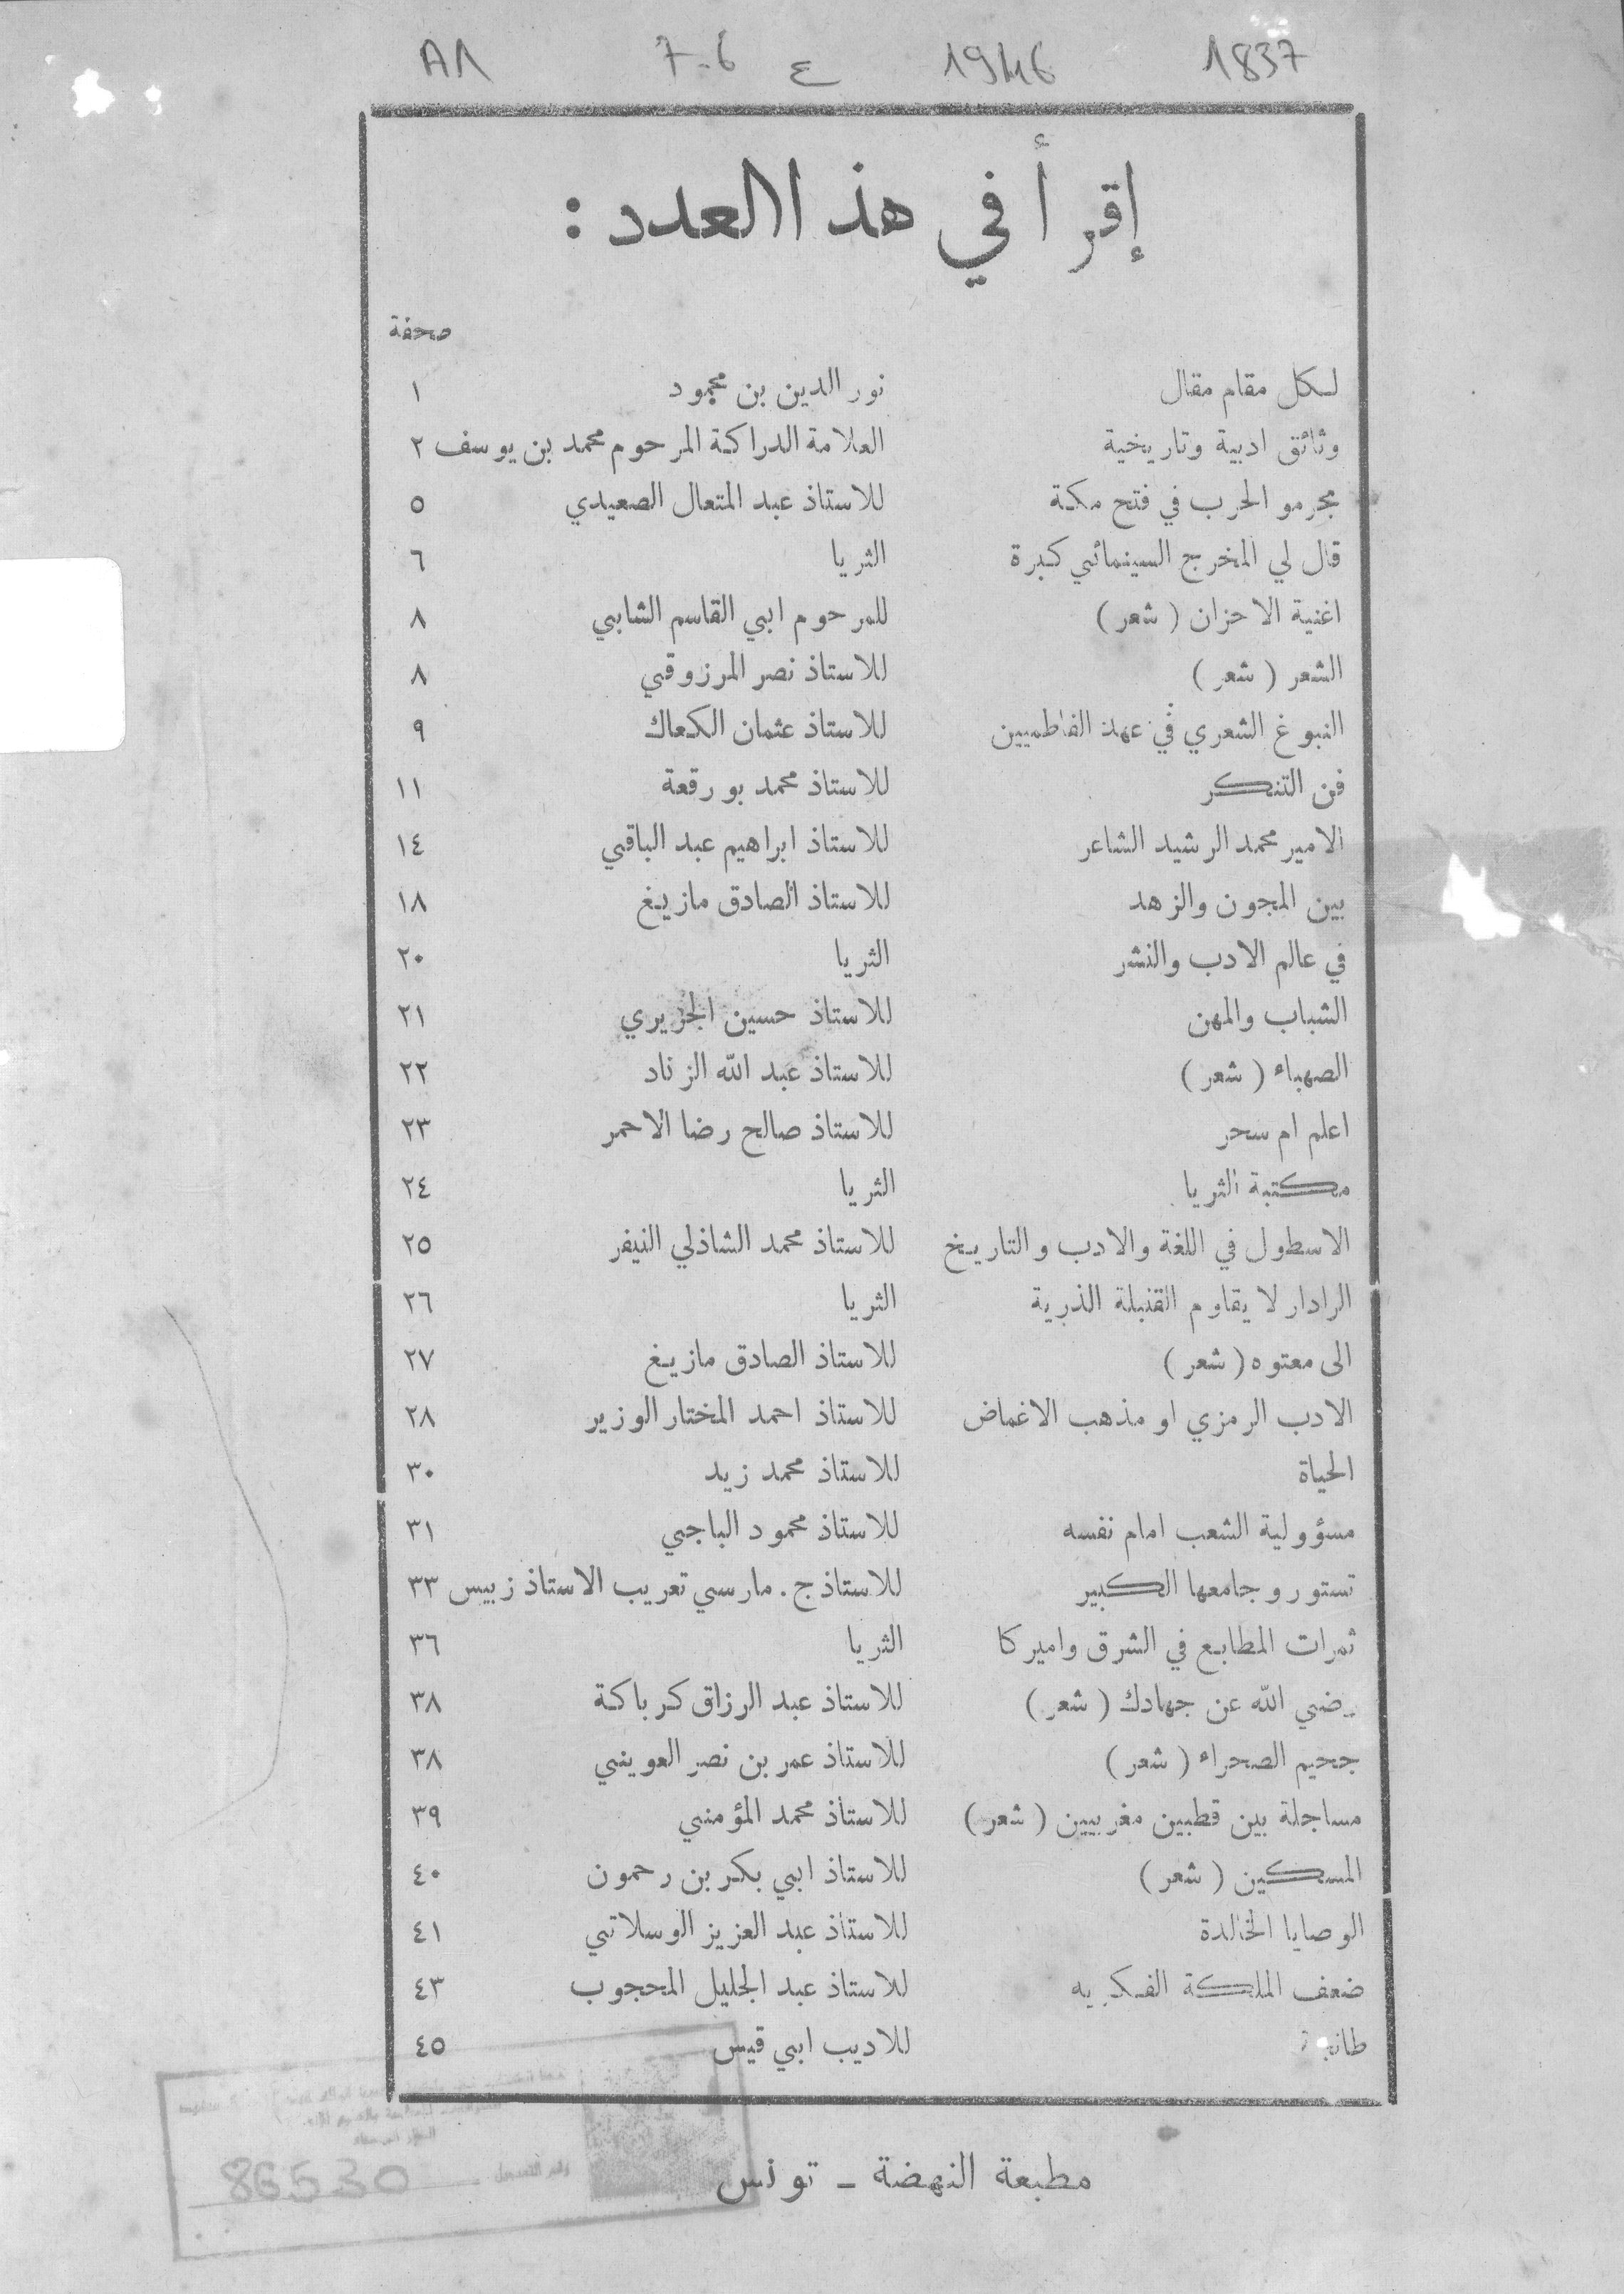 A1 7-6 ع 1946 1837
إقرأ في هذا العدد :
صحفة
لكل مقام مقال نور الدين بن محمود ١
وثائق ادبية وتاريخية العلامة الدراكة المرحوم محمد بن يوسف ٢
مجرمو الحرب في فتح مكة للاستاذ عبد المتعال الصعيدي ٥
قال لي المخرج السينمائي كبرة الثريا ٦
اغنية الاحزان ( شعر ) للمرحوم ابي القاسم الشابي ٨
الشعر ( شعر ) للاستاذ نصر المرزوقي ٨
النبوغ الشعري في عهد الفاطميين للاستاذ عثمان الكعاك ٩
فن التنكر للاستاذ محمد بورقعة ١١
الامير محمد الرشيد الشاعر للاستاذ ابراهيم عبد الباقي ١٤
بين المجون والزهد للاستاذ الصادق مازيغ ١٨
في عالم الادب والنشر الثريا ٢٠
الشباب والمهن للاستاذ حسين الجزيري ٢١
الصهباء ( شعر ) للاستاذ عبد الله الزناد ٢٢
اعلم ام سحر للاستاذ صالح رضا الاحمر ٢٣
مكتبة الثريا الثريا ٢٤
الاسطول في اللغة والادب والتاريخ للاستاذ محمد الشاذلي النيفر ٢٥
الرادار لا يقاوم القنبلة الذرية الثريا ٢٦
الى معتوه ( شعر ) للاستاذ الصادق مازيغ ٢٧
الادب الرمزي او مذهب الاغماض للاستاذ احمد المختار الوزير ٢٨
الحياة للاستاذ محمد زيد ٣٠
مسؤولية الشعب امام نفسه للاستاذ محمود الباجي ٣١
تستور وجامعها الكبير للاستاذ ج . مارسي تعريب الاستاذ زبيس ٣٣
ثمرات المطابع في الشرق واميركا الثريا ٣٦
رضي الله عن جهادك ( شعر ) للاستاذ عبد الرزاق كرباكة ٣٨
جحيم الصحراء ( شعر ) للاستاذ عمر بن نصر العويني ٣٨
مساجلة بين قطبين مغربيين ( شعر ) للاستاذ محمد المؤمني ٣٩
المسكين ( شعر ) للاستاذ ابي بكر بن رحمون ٤٠
الوصايا الخالدة للاستاذ عبد العزيز الوسلاتي ٤١
ضعف الملكة الفكريه للاستاذ عبد الجليل المحجوب ٤٣
للاديب ابي قيس ٤٥
مطبعة النهضة ـ تونس
رقم التسجيل 86530